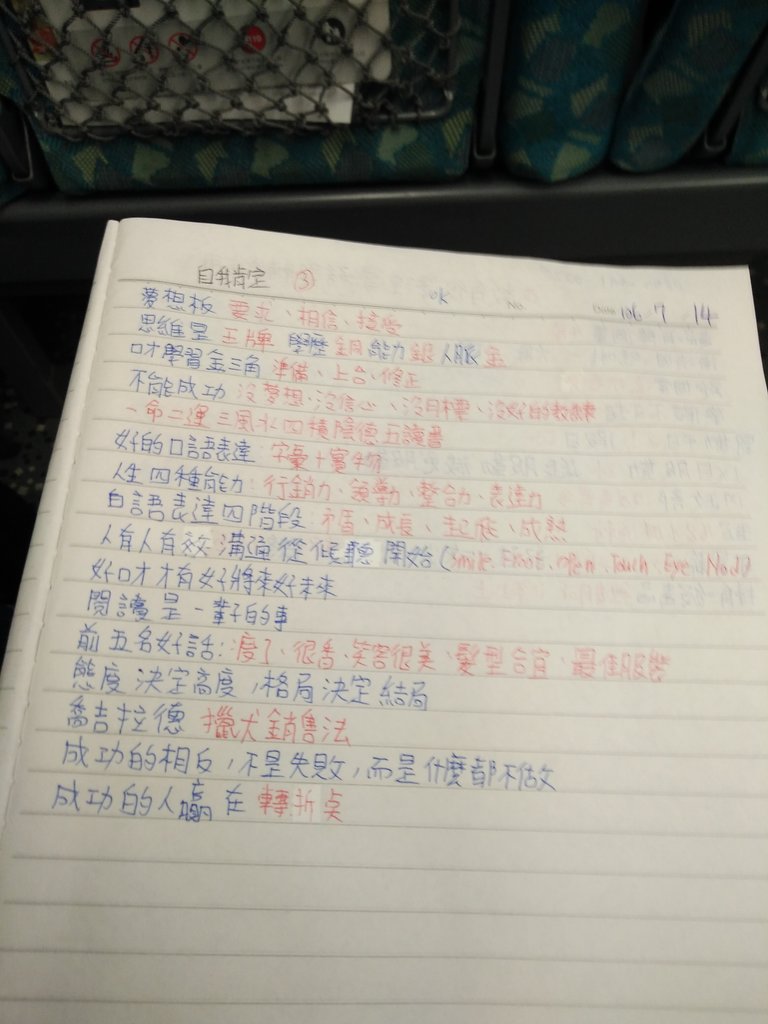 自我肯定 ③
ok No. Date 106 7 14
夢想板 要求、相信、接受
思維是王牌 學歷銅 能力銀 人脈金
口才學習金三角 準備、上台、修正
不能成功 沒夢想、沒信心、沒目標、沒好的教練
一命二運三風水四積陰德五讀書
好的口語表達:字彙+實物
人生四種能力:行銷力、領導力、整合力、表達力
口語表達四階段:矛盾、成長、起飛、成熟
人有人有效溝通從傾聽開始(Smile. Front. open. Touch. Eye. Nod)
好口才才有好將來好未來
閱讀是一輩子的事
前五名好話:瘦了、很香、笑容很美、髮型合宜、最佳服裝
態度決定高度,格局決定結局
喬吉拉德 獵犬銷售法
成功的相反,不是失敗,而是什麼都不做
成功的人贏在轉折點